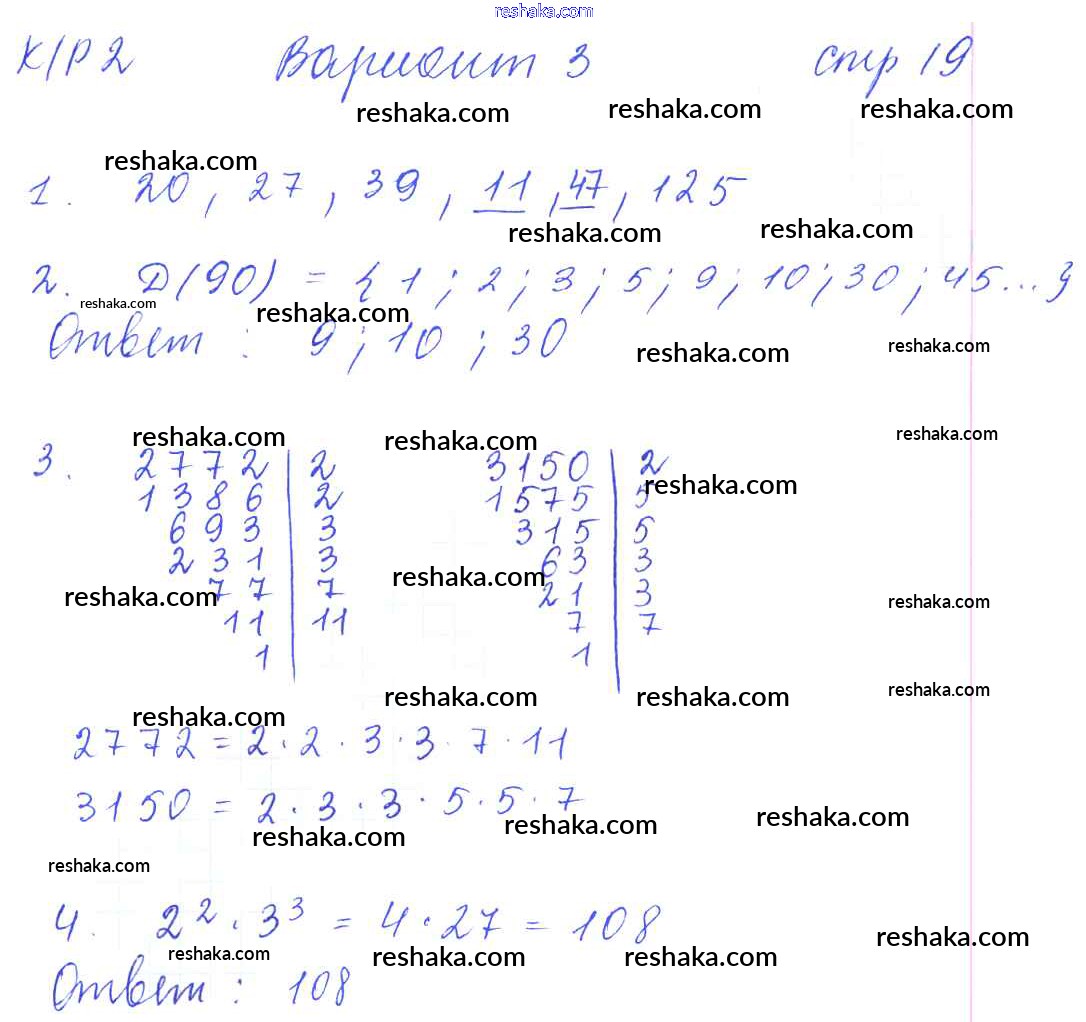 reshaka.com
К/Р 2 Вариант 3 стр 19
reshaka.com reshaka.com reshaka.com
reshaka.com
1. 20, 27, 39, 11, 47, 125
reshaka.com reshaka.com
2. Д(90) = {1; 2; 3; 5; 9; 10; 30; 45...}
reshaka.com reshaka.com
Ответ: 9; 10; 30
reshaka.com reshaka.com
reshaka.com reshaka.com reshaka.com
3. 2772 | 2 3150 | 2
reshaka.com
1386 | 2 1575 | 5
693 | 3 315 | 5
231 | 3 63 | 3
reshaka.com reshaka.com reshaka.com
77 | 7 21 | 3
11 | 11 7 | 7
1 1
reshaka.com reshaka.com reshaka.com reshaka.com
2772 = 2 · 2 · 3 · 3 · 7 · 11
3150 = 2 · 3 · 3 · 5 · 5 · 7
reshaka.com reshaka.com reshaka.com
reshaka.com
4. 2² · 3³ = 4 · 27 = 108
reshaka.com reshaka.com reshaka.com reshaka.com
Ответ: 108